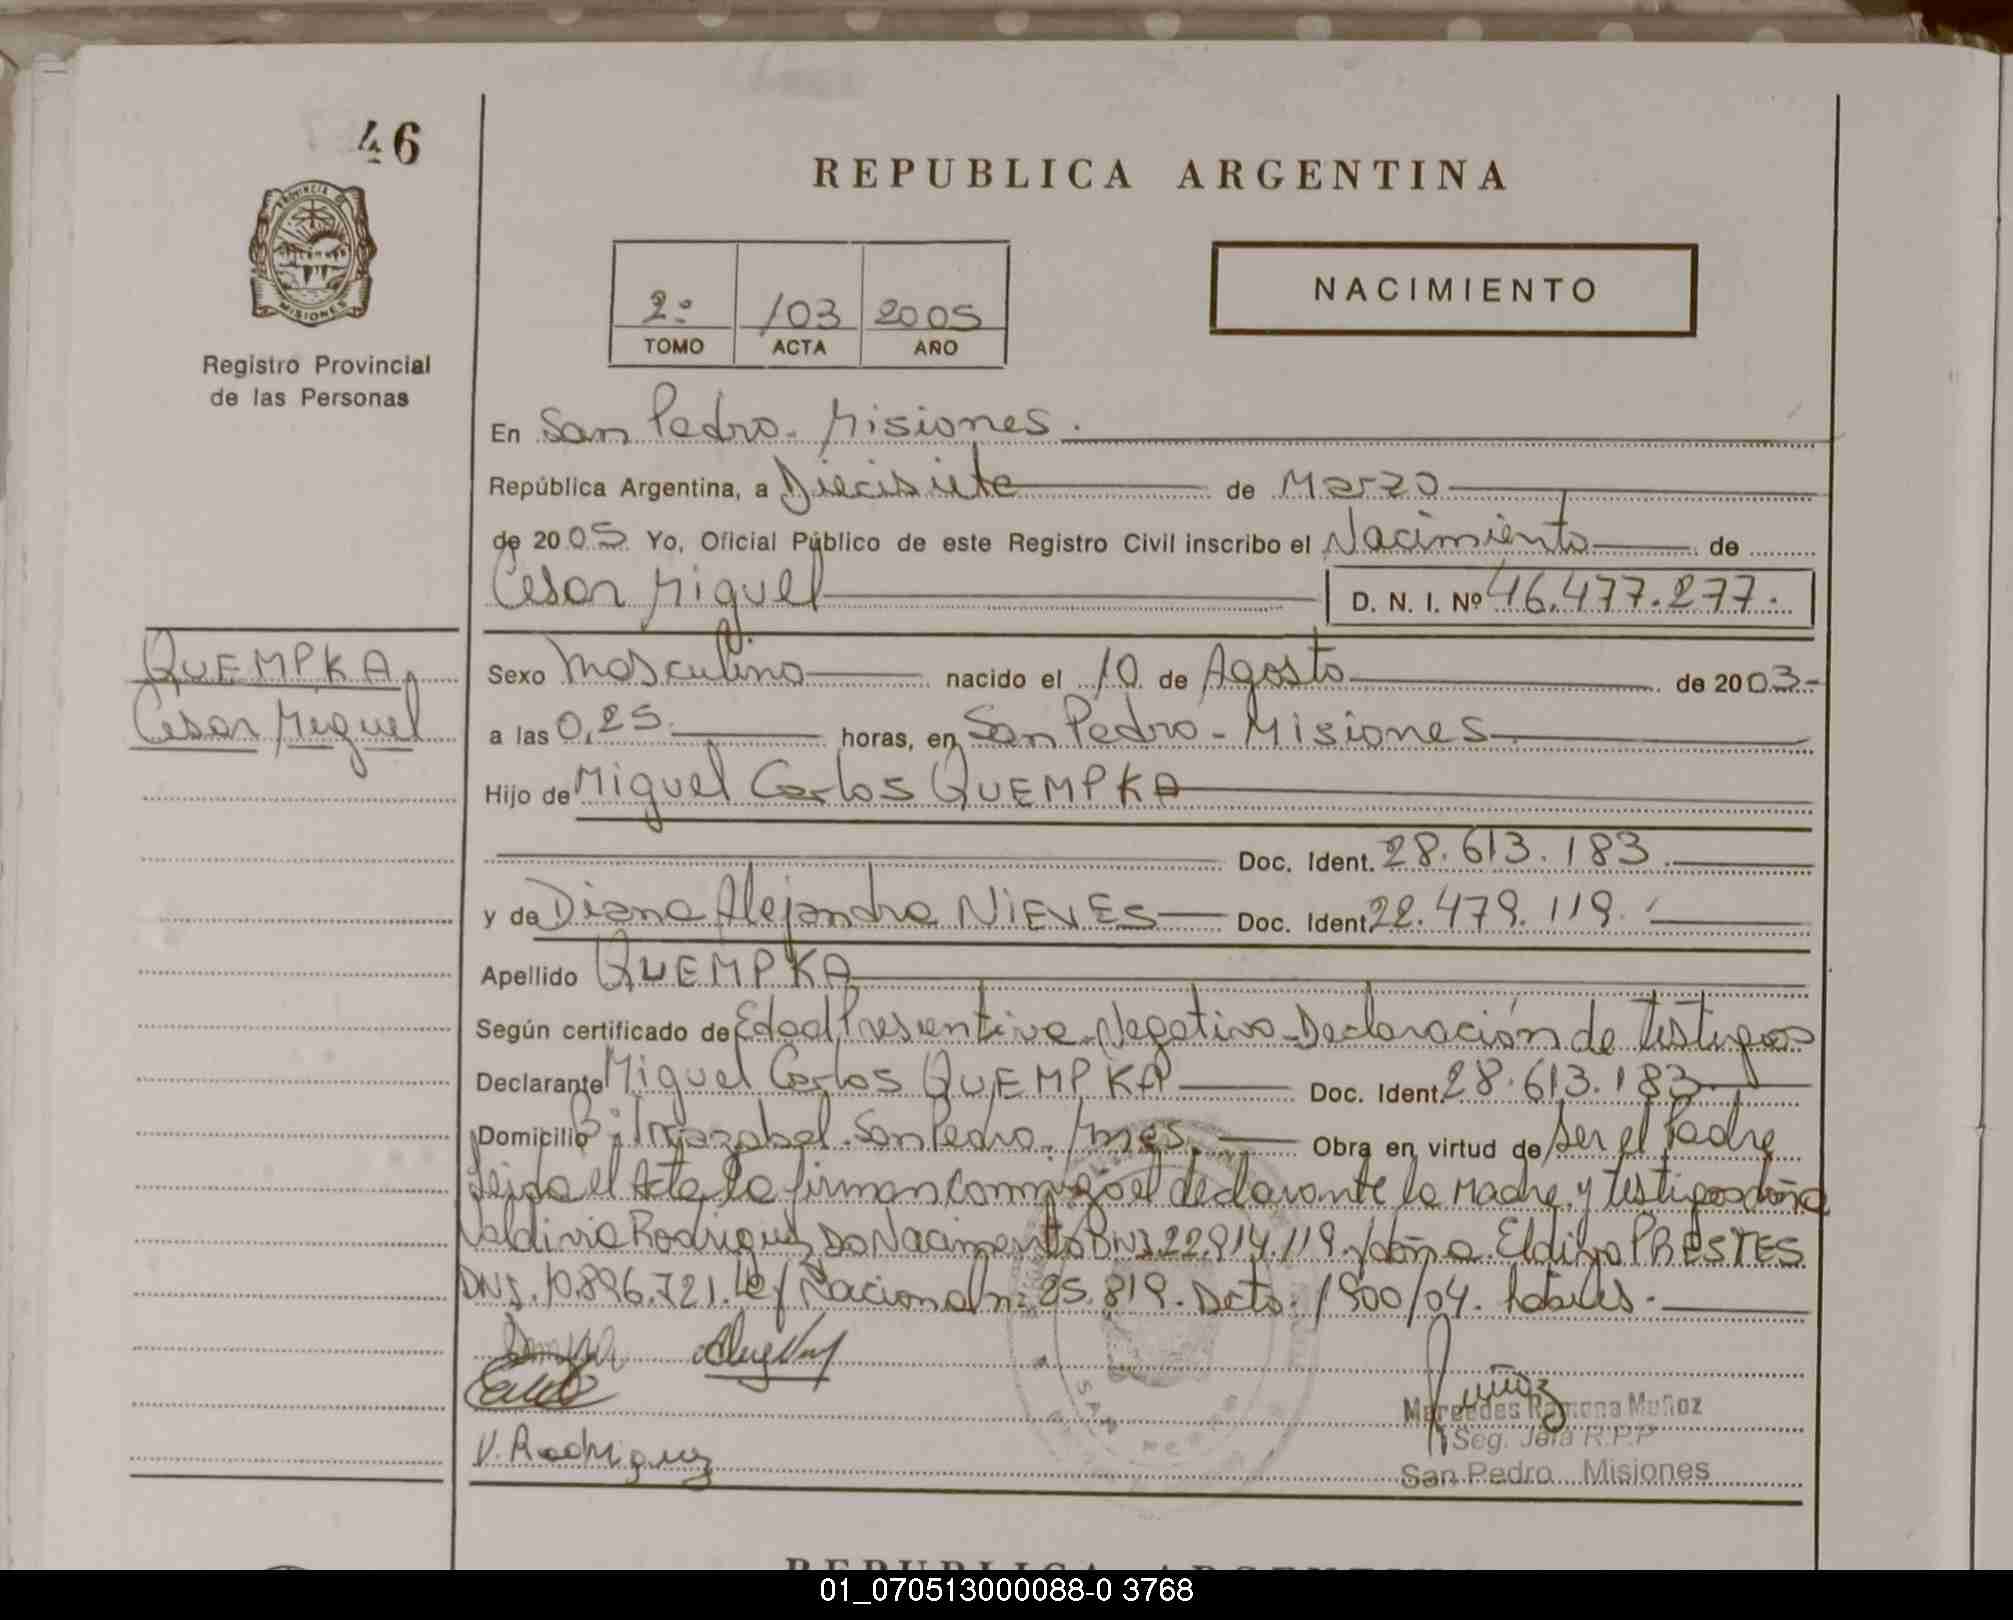 46
REPUBLICA ARGENTINA
PROVINCIA DE
MISIONES
2º /03 2005
TOMO ACTA AÑO
NACIMIENTO
Registro Provincial
de las Personas
En San Pedro - Misiones.
República Argentina, a Diecisiete de Marzo
de 2005 Yo, Oficial Público de este Registro Civil inscribo el Nacimiento de
Cesar Miguel D. N. I. Nº 46.477.277.
QUEMPKA,
Cesar Miguel
Sexo Masculino nacido el 10 de Agosto de 2003-
a las 0,25 horas, en San Pedro - Misiones
Hijo de Miguel Carlos QUEMPKA
Doc. Ident. 28.613.183
y de Diana Alejandra NIEVES Doc. Ident. 22.479.119.
Apellido QUEMPKA
Según certificado de Edad Presentiva - Negativo - Declaración de testigos
Declarante Miguel Carlos QUEMPKA Doc. Ident. 28.613.183
Domicilio Bº Irrazabal - San Pedro - Mnes. Obra en virtud de ser el Padre
Leida el Acta la firman conmigo el declarante la Madre y testigos doña
Valdivia Rodriguez Do Nacimento DNI 22.914.119. / doña Eldira PRESTES
DNI. 10.896.721. Ley Nacional nº 25.819. Dcto. 1900/04.
V. Rodriguez
Muñoz
Mercedes Ramona Muñoz
Seg. Jefa R.P.P
San Pedro Misiones
REPUBLICA ARGENTINA
01_070513000088-0 3768